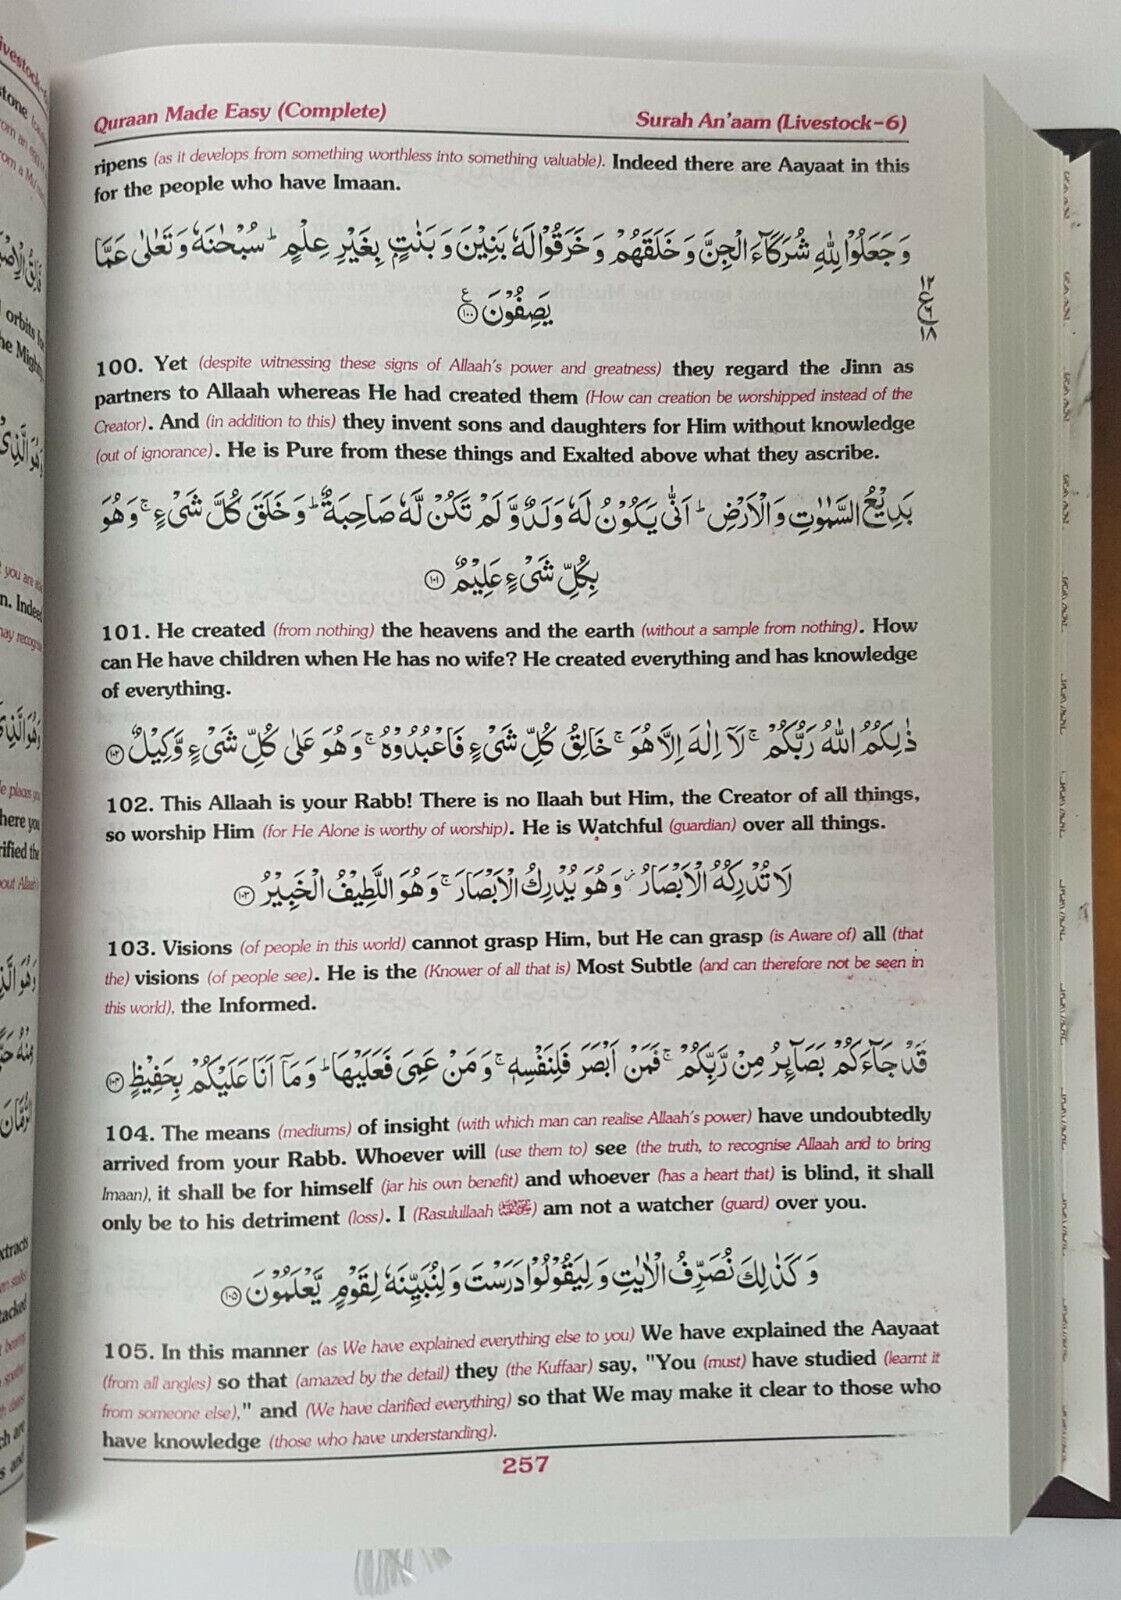 Quraan Made Easy (Complete)
Surah An'aam (Livestock-6)
ripens (as it develops from something worthless into something valuable). Indeed there are Aayaat in this
for the people who have Imaan.
وَجَعَلُوْا لِلّٰهِ شُرَكَآءَ الْجِنَّ وَخَلَقَهُمْ وَخَرَقُوْا لَهٗ بَنِيْنَ وَبَنٰتٍۭ بِغَيْرِ عِلْمٍ ؕ سُبْحٰنَهٗ وَتَعٰلٰى عَمَّا
يَصِفُوْنَ ۧ ﴿۱۰۰﴾
۱۲
ع
۱۸
100. Yet (despite witnessing these signs of Allaah's power and greatness) they regard the Jinn as
partners to Allaah whereas He had created them (How can creation be worshipped instead of the
Creator). And (in addition to this) they invent sons and daughters for Him without knowledge
(out of ignorance). He is Pure from these things and Exalted above what they ascribe.
بَدِيْعُ السَّمٰوٰتِ وَالْاَرْضِ ؕ اَنّٰى يَكُوْنُ لَهٗ وَلَدٌ وَّلَمْ تَكُنْ لَّهٗ صَاحِبَةٌ ؕ وَخَلَقَ كُلَّ شَيْءٍ ۚ وَهُوَ
بِكُلِّ شَيْءٍ عَلِيْمٌ ﴿۱۰۱﴾
101. He created (from nothing) the heavens and the earth (without a sample from nothing). How
can He have children when He has no wife? He created everything and has knowledge
of everything.
ذٰلِكُمُ اللّٰهُ رَبُّكُمْ ۚ لَاۤ اِلٰهَ اِلَّا هُوَ ۚ خَالِقُ كُلِّ شَيْءٍ فَاعْبُدُوْهُ ۚ وَهُوَ عَلٰى كُلِّ شَيْءٍ وَّكِيْلٌ ﴿۱۰۲﴾
102. This Allaah is your Rabb! There is no Ilaah but Him, the Creator of all things,
so worship Him (for He Alone is worthy of worship). He is Watchful (guardian) over all things.
لَا تُدْرِكُهُ الْاَبْصَارُ ؗ وَهُوَ يُدْرِكُ الْاَبْصَارَ ۚ وَهُوَ اللَّطِيْفُ الْخَبِيْرُ ﴿۱۰۳﴾
103. Visions (of people in this world) cannot grasp Him, but He can grasp (is Aware of) all (that
the) visions (of people see). He is the (Knower of all that is) Most Subtle (and can therefore not be seen in
this world), the Informed.
قَدْ جَآءَكُمْ بَصَآئِرُ مِنْ رَّبِّكُمْ ۚ فَمَنْ اَبْصَرَ فَلِنَفْسِهٖ ۚ وَمَنْ عَمِيَ فَعَلَيْهَا ؕ وَمَاۤ اَنَا عَلَيْكُمْ بِحَفِيْظٍ ﴿۱۰۴﴾
104. The means (mediums) of insight (with which man can realise Allaah's power) have undoubtedly
arrived from your Rabb. Whoever will (use them to) see (the truth, to recognise Allaah and to bring
Imaan), it shall be for himself (jar his own benefit) and whoever (has a heart that) is blind, it shall
only be to his detriment (loss). I (Rasulullaah ﷺ) am not a watcher (guard) over you.
وَكَذٰلِكَ نُصَرِّفُ الْاٰيٰتِ وَلِيَقُوْلُوْا دَرَسْتَ وَلِنُبَيِّنَهٗ لِقَوْمٍ يَّعْلَمُوْنَ ﴿۱۰۵﴾
105. In this manner (as We have explained everything else to you) We have explained the Aayaat
(from all angles) so that (amazed by the detail) they (the Kuffaar) say, "You (must) have studied (learnt it
from someone else)," and (We have clarified everything) so that We may make it clear to those who
have knowledge (those who have understanding).
257